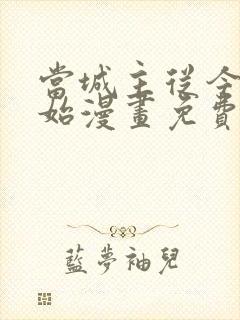 當城主從今
始漫畫免費
藍夢袖兒